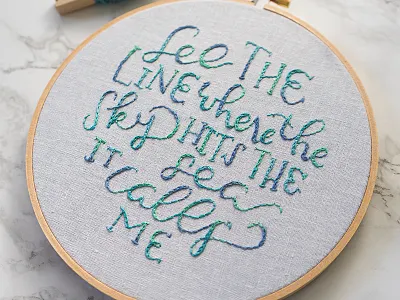 See THE
LINE where the
Sky HITS THE
IT sea
calls
ME